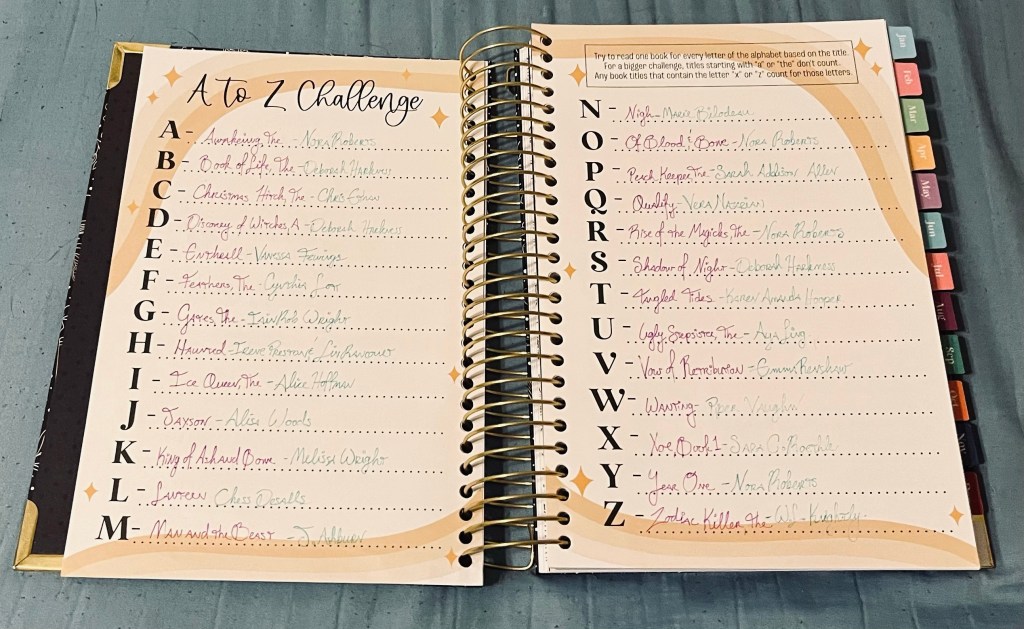 A to Z Challenge
A - Awakening, The - Nora Roberts
B - Book of Life, The - Deborah Harkness
C - Christmas Hitch, The - Chris
D - Discovery of Witches, A - Deborah Harkness
E - - Vanessa
F - Feathers, The - Cynthia
G - Gates, The - Iain Rob Wright
H - Haunted -
I - Ice Queen, The - Alice Hoffman
J - Jaxson - Alisa Woods
K - King of Ash and Bone - Melissa Wright
L - Chess Desalls
M - Man and the Beast - J.
Try to read one book for every letter of the alphabet based on the title.
For a bigger challenge, titles starting with "a" or "the" don't count.
Any book titles that contain the letter "x" or "z" count for those letters.
N - Nigh - Marie Bilodeau
O - Of Blood & Bone - Nora Roberts
P - Peach Keeper, The - Sarah Addison Allen
Q - Qualify - Vera Nazarian
R - Rise of the Magicks, The - Nora Roberts
S - Shadow of Night - Deborah Harkness
T - Tangled Tides - Karen Amanda Hooper
U - Ugly Stepsister, The - Aya Ling
V - Vow of Retribution - Emma Renshaw
W - Wanting - Piper Vaughn
X - Xoe Book 1 - Sara C. Roethle
Y - Year One - Nora Roberts
Z - Zodiac Killer, the - WS -
Jan
Feb
Mar
Apr
May
Jun
Jul
Aug
Sep
Oct
Nov